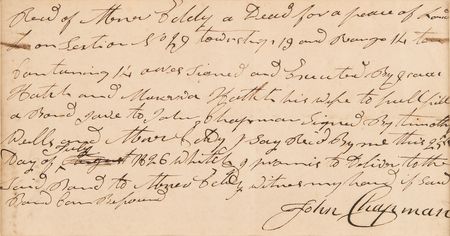 Recd of Abner Eddy a Dead for a peace of Land
on Section No 29 township 19 and Range 14 to
Containing 14 acres Signed and Executed By
Hatch and his wife to full fill
a Bond gave to John Chapman Signed By timothy
and Abner Eddy I Say Recd By me this 25
Day of July August 1826 which I promis to Deliver to the
Said Bond to Abner Eddy witness my hand if Said
Bond Can Be found
John Chapman